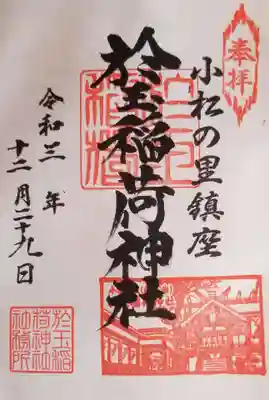 奉拝
小松の里鎮座
於玉稲荷神社
令和三年
十二月二十九日
於玉稲
荷神社
社務所